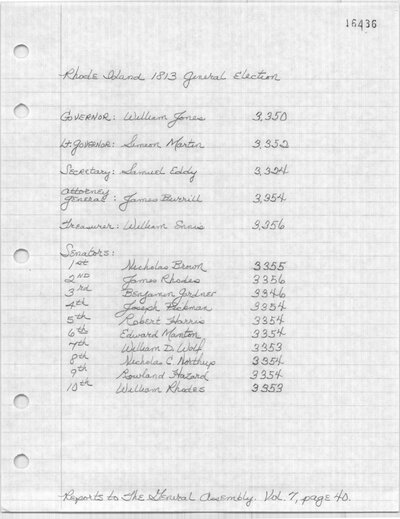 16436
Rhode Island 1813 General Election
Governor: William Jones 3,350
Lt. Governor: Simeon Martin 3,352
Secretary: Samuel Eddy 3,324
Attorney
General: James Burrill 3,354
Treasurer: William Ennis 3,356
Senators:
1st Nicholas Brown 3355
2ND James Rhodes 3356
3rd Benjamin Gardner 3346
4th Joseph Peckman 3354
5th Robert Harris 3354
6th Edward Manton 3354
7th William D. Wolf 3353
8th Nicholas C. Northup 3354
9th Rowland Hazard 3354
10th William Rhodes 3353
Reports to The General Assembly. Vol. 7, page 40.